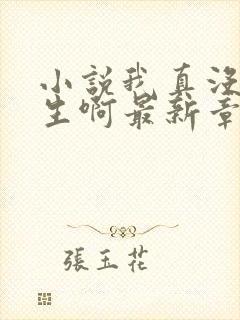 小說我真沒
生啊最新章
張玉花